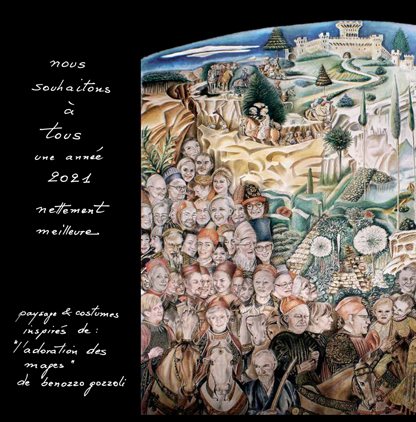 nous
souhaitons
à
tous
une année
2021
nettement
meilleure
paysage & costumes
inspirés de :
"l'adoration des
mages"
de benozzo gozzoli